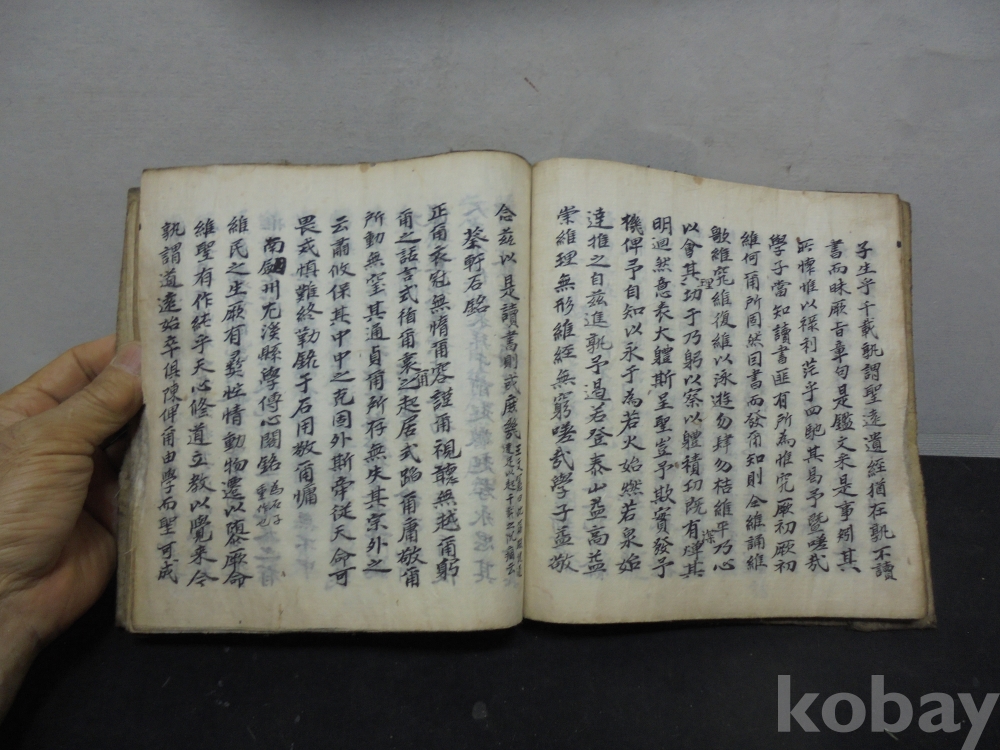 子生乎千載孰謂聖遠遺經猶在孰不讀
書而昧厥旨章句是鑑文采是事矧其
所懷惟以祿利茫乎四馳其曷予暨嗟哉
學子當知讀書匪有所為惟究厥初厥初
維何爾所固然因書而發爾知則全維誦維
歌維究維復維以泳游勿肆勿枯維平乃心
以會其理切于乃躬以察以體積功既有煒其
明迴然意表大體斯呈聖豈予欺實發予
機俾予自知以永于為若火始燃若泉始
達推之自茲進孰予遏若登泰山益高益
崇維理無形維經無窮嗟哉學子益敬
念茲以是讀書則或庶幾
葵軒石銘
正爾衣冠無惰爾容謹爾視聽無越爾躬
爾之話言式循爾衷爾之起居式蹈爾庸敬爾
所動無窒其通貞爾所存無失其宗外之
云肅攸保其中中之克固外斯牽從天命可
畏戒慎難終勒銘于石用敬爾慵
南劒州尤溪縣學傳心閣銘
維民之生厥有彝性情動物遷以隳厥命
維聖有作純乎天心修道立教以覺來今
孰謂道遠始卒俱陳俾爾由學而聖可成
kobay